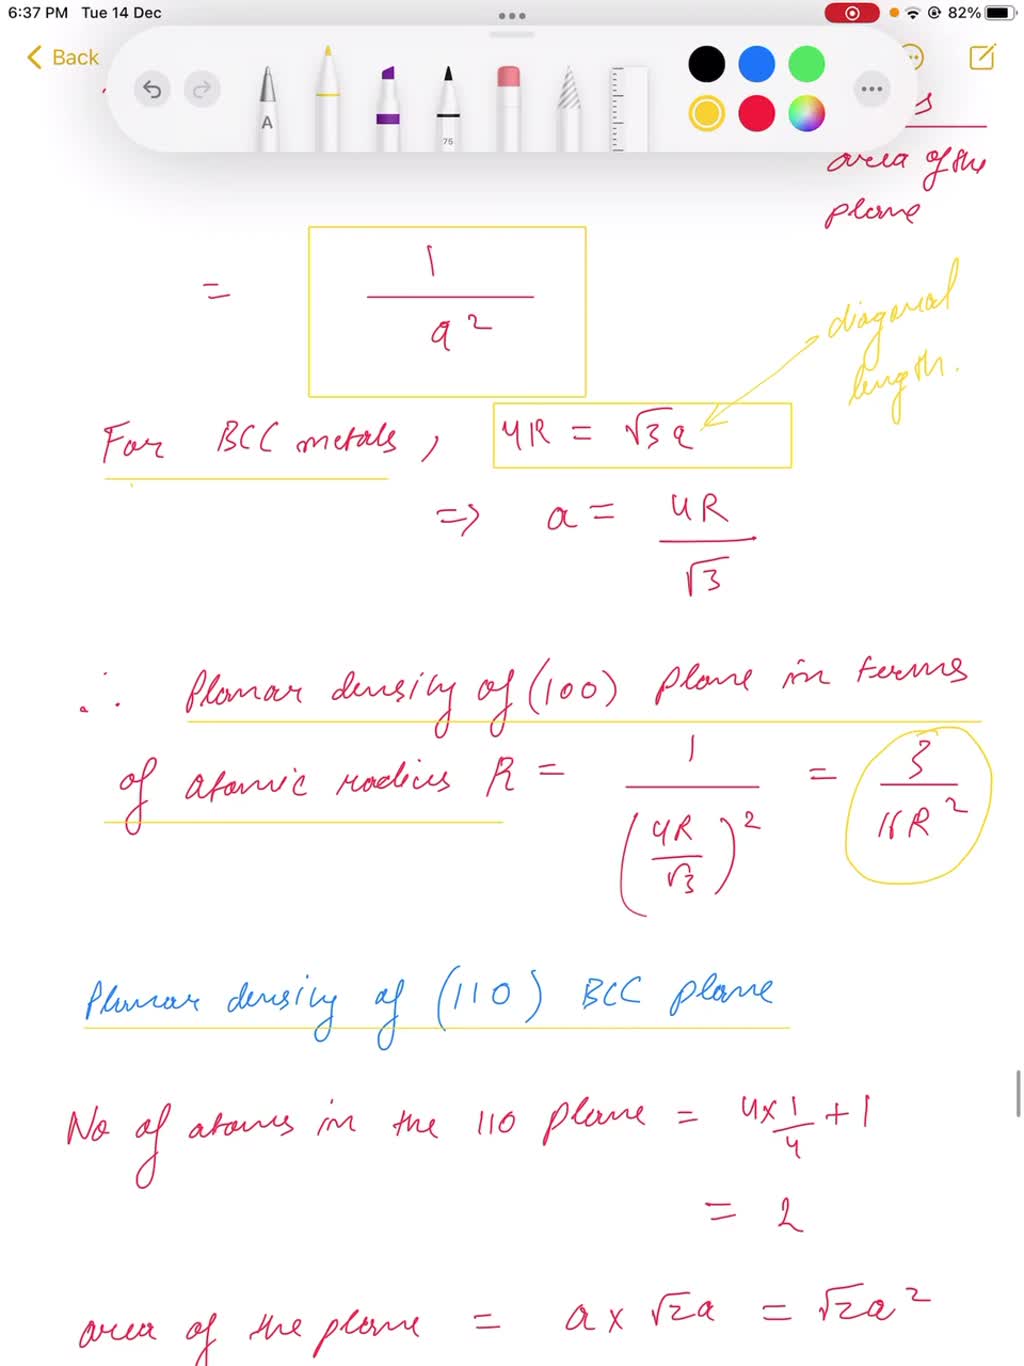 6:37 PM Tue 14 Dec
82%
Back
A
75
area of the
plane
= 1 / a²
diagonal
length.
For BCC metals, 4R = √3a
=> a = 4R / √3
∴ Planar density of (100) plane in terms
of atomic radius R = 1 / (4R/√3)² = 3 / 16R²
Planar density of (110) BCC plane
No of atoms in the 110 plane = 4 × 1/4 + 1
= 2
area of the plane = a × √2a = √2a²